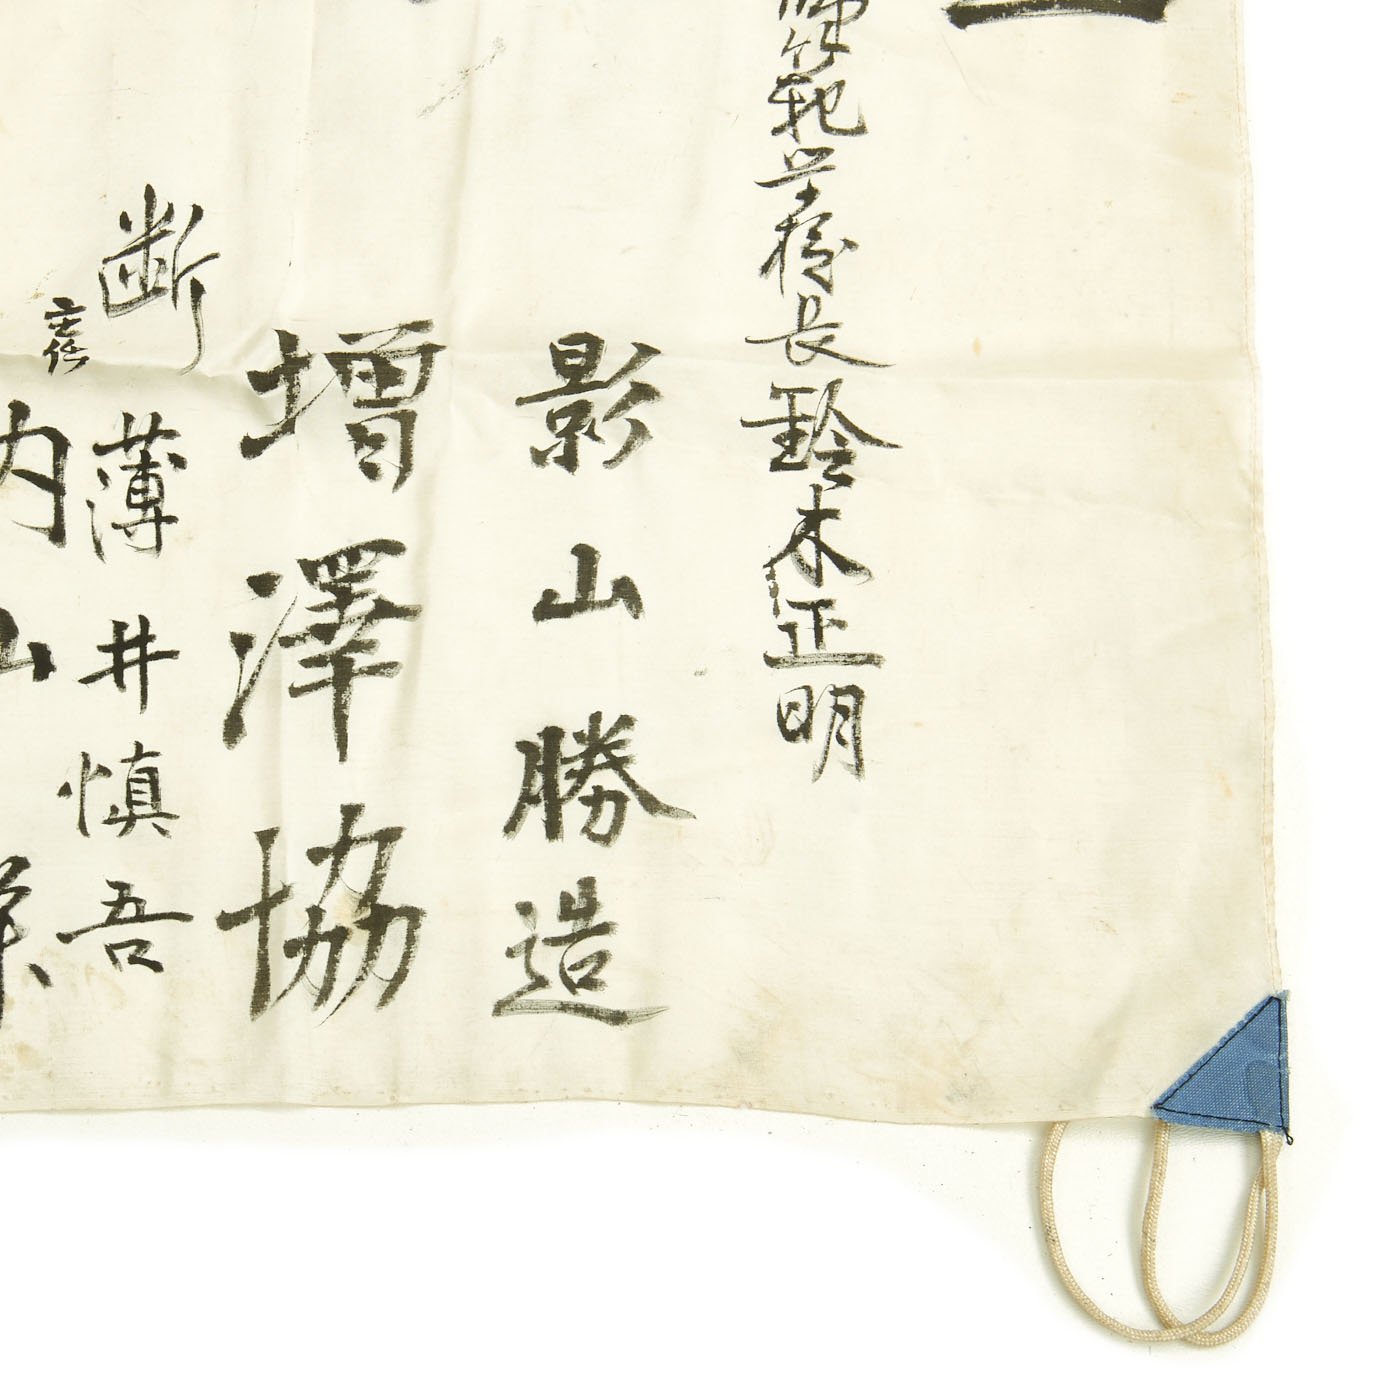 師範学校長鈴木正明
影山勝造
増澤協
断
薄井慎吾
主任
内山